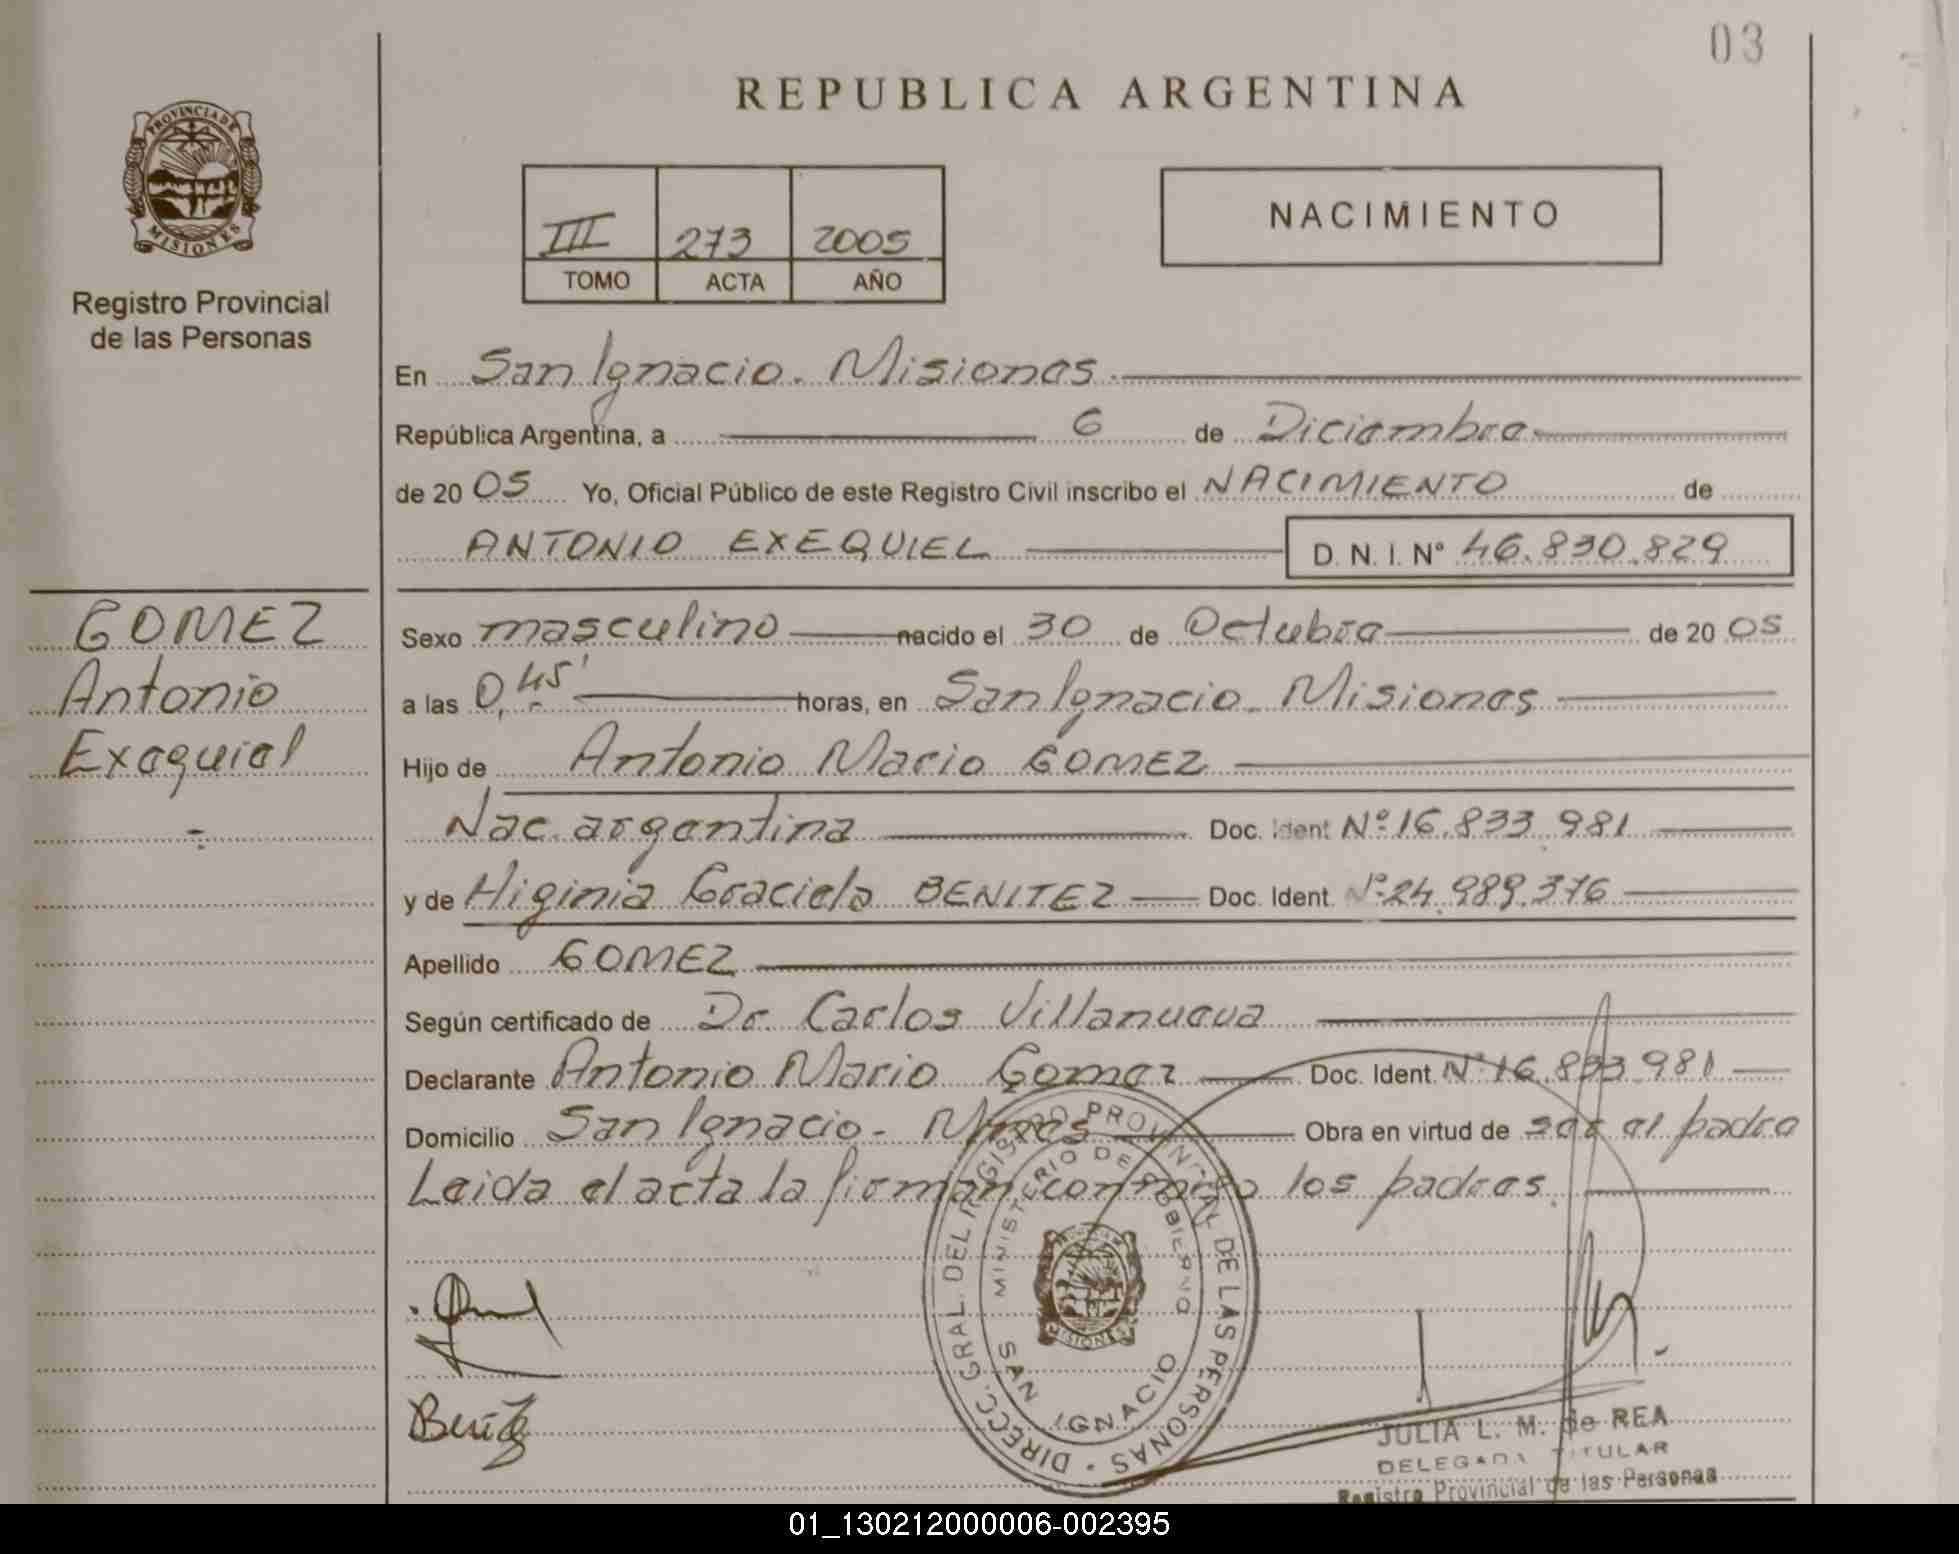 03
REPUBLICA ARGENTINA
PROVINCIA DE
MISIONES
Registro Provincial
de las Personas
III 273 2005
TOMO ACTA AÑO
NACIMIENTO
En San Ignacio. Misiones.
República Argentina, a 6 de Diciembre
de 20 05 Yo, Oficial Público de este Registro Civil inscribo el NACIMIENTO de
ANTONIO EXEQUIEL D. N. I. Nº 46.830.829
GOMEZ
Antonio
Exequiel
Sexo masculino nacido el 30 de Octubre de 20 05
a las 0,45' horas, en San Ignacio. Misiones
Hijo de Antonio Mario GOMEZ
Nac. argentina Doc. Ident Nº 16.833.981
y de Higinia Graciela BENITEZ Doc. Ident. Nº 24.989.376
Apellido GOMEZ
Según certificado de Dr. Carlos Villanueva
Declarante Antonio Mario Gomez Doc. Ident. Nº 16.833.981
Domicilio San Ignacio - Mnes Obra en virtud de ser el padre
Leida el acta la firman conmigo los padres.
DIRECC. GRAL. DEL REGISTRO PROVINCIAL DE LAS PERSONAS
MINISTERIO DE GOBIERNO
MISIONES
SAN IGNACIO
JULIA L. M. de REA
DELEGADA TITULAR
Registro Provincial de las Personas
01_130212000006-002395